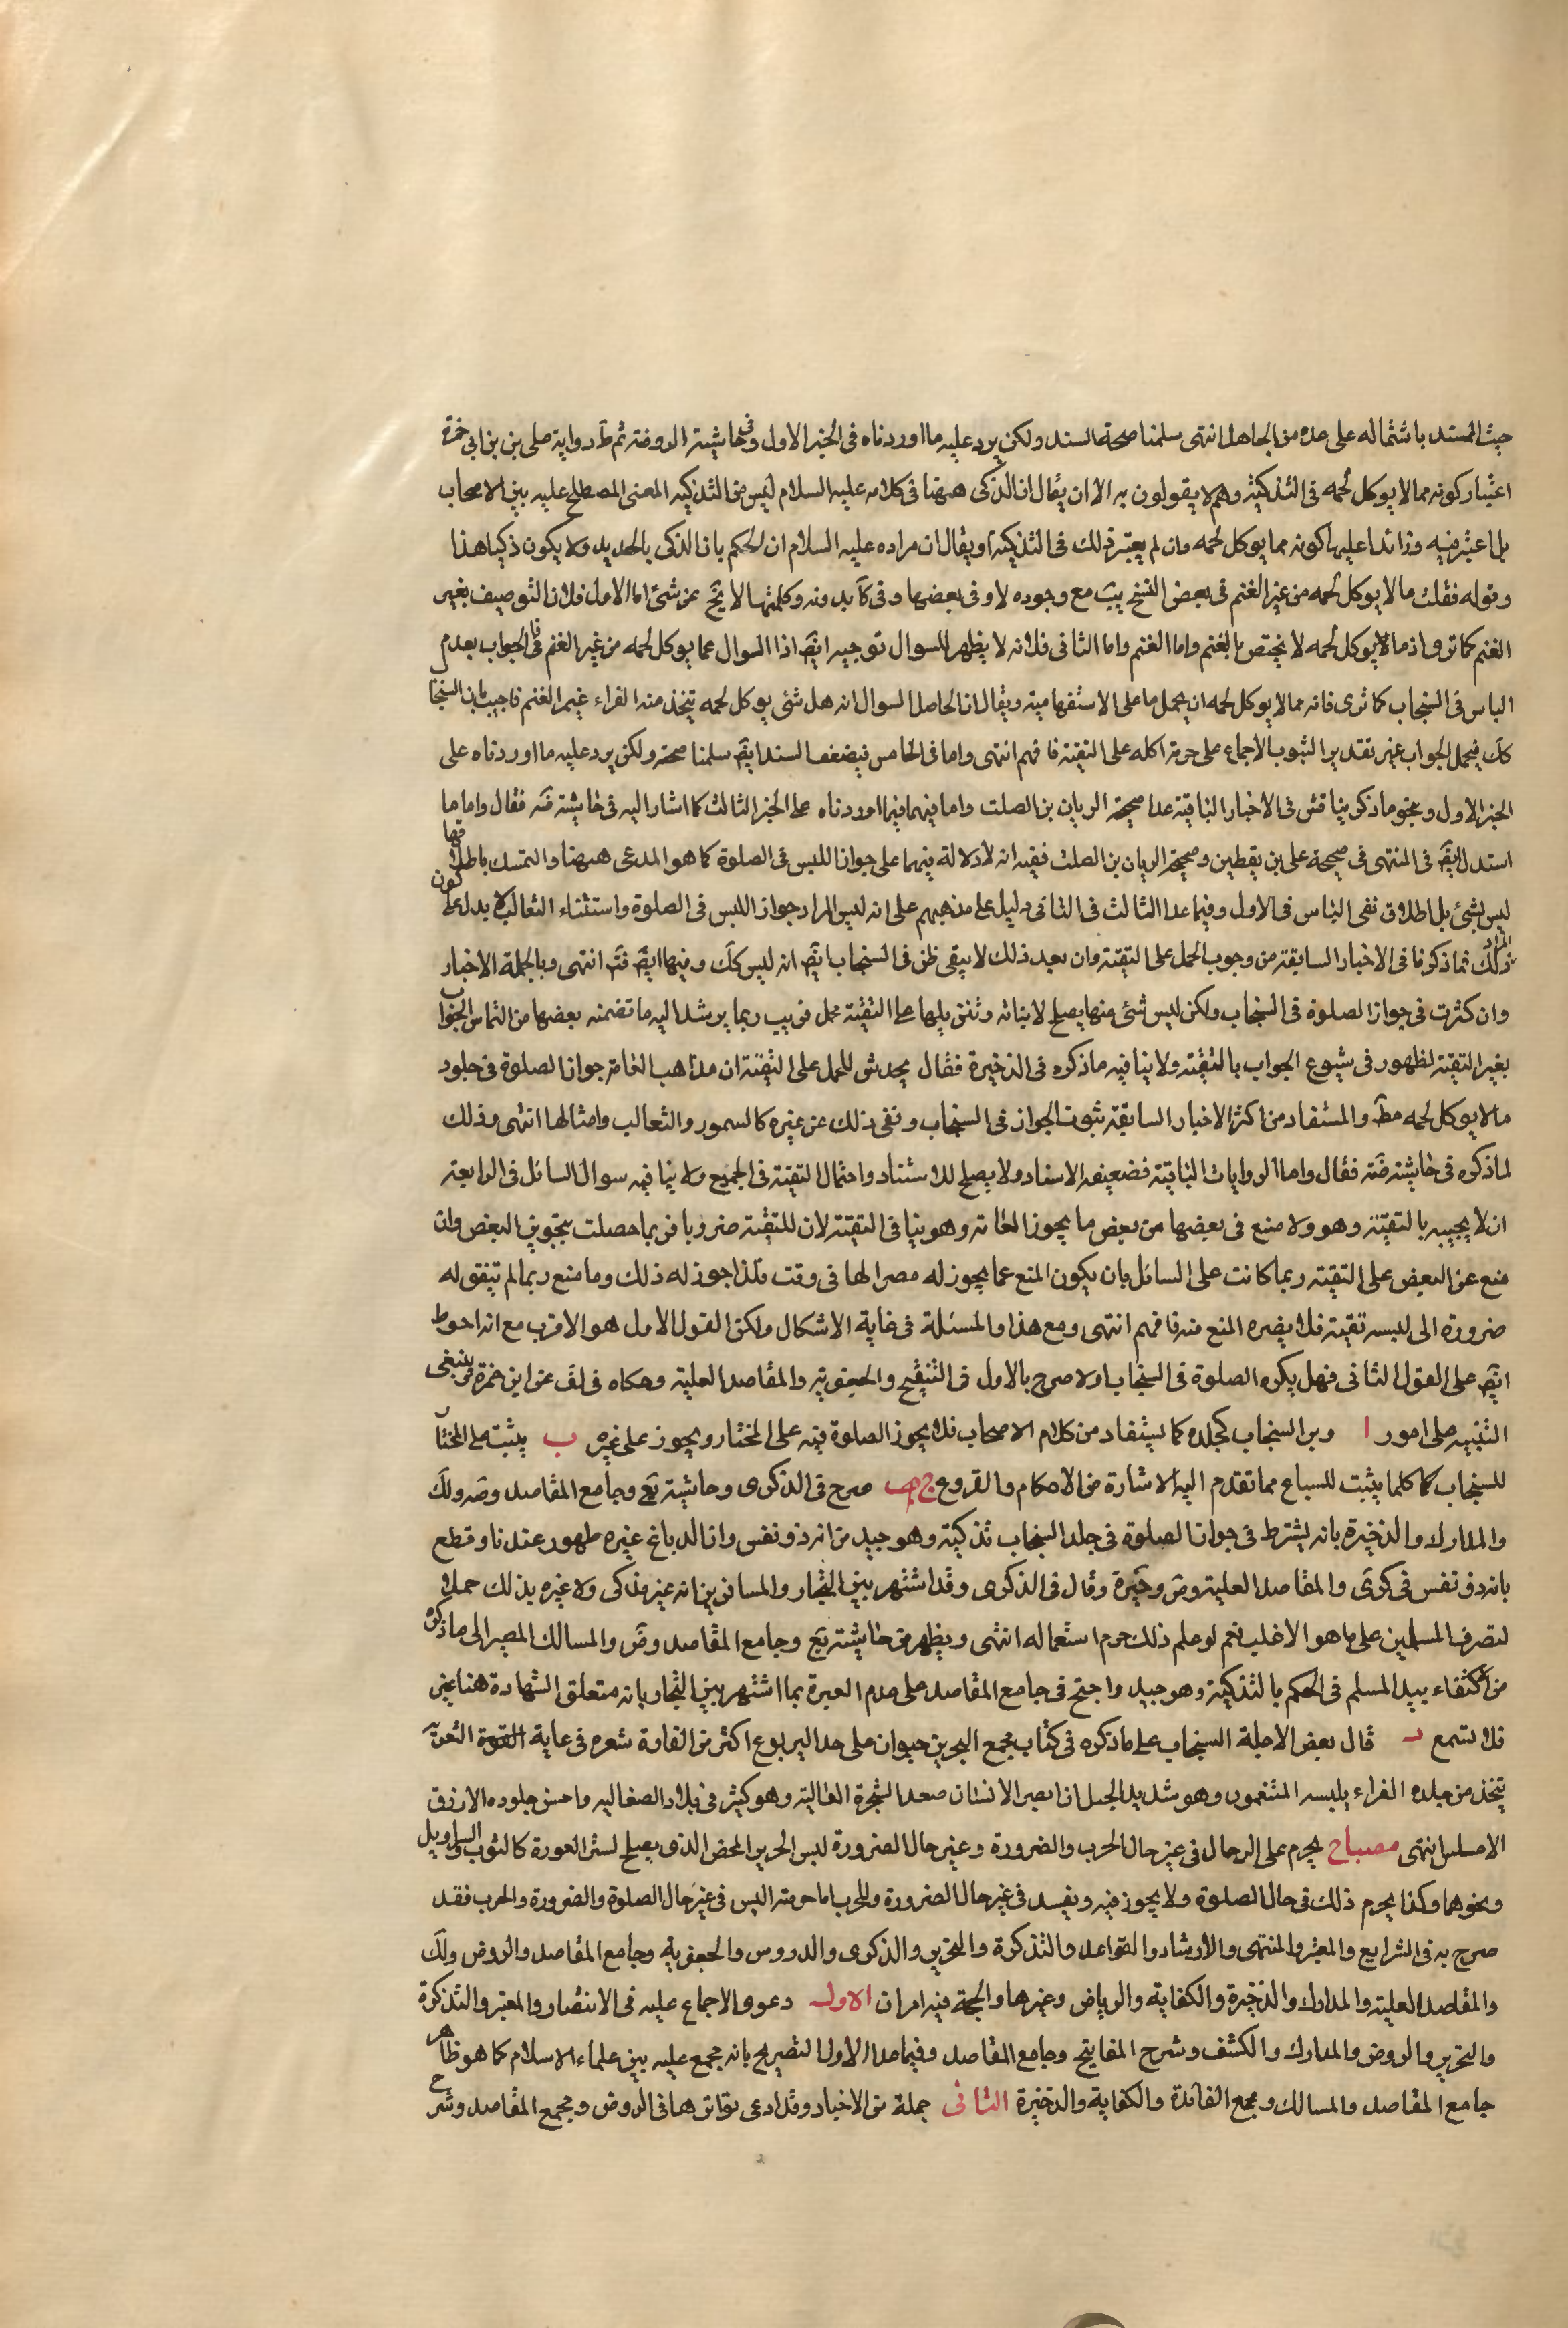 حيث المستند باشتماله على عدة من المجاهيل انتهى سلمنا صحة السند ولكن يرد عليه ما اوردناه فى الخبر الاول وفى حاشية الروضة ثم ظ رواية على بن ابى حمزة
اعتبار كونه مما لا يوكل لحمه فى التذكية وهم لا يقولون به الا ان يقال ان الذكى ههنا فى كلامه عليه السلام ليس من التذكية المعنى المصطلح عليه بين الاصحاب
بل اعتبر فيه وزائدا عليها كونه مما يوكل لحمه وان لم يعتبر ذلك فى التذكية او يقال ان مراده عليه السلام ان الحكم بان الذكى بالحديد ولا يكون ذكيا هذا
وقوله فقلت ما لا يوكل لحمه من غير الغنم فى بعض النسخ بيت مع وجوده لا وفى بعضها وفى كآ بدونه وكلتهما لا يخ عن شئ اما الاول فلان التوصيف بغير
الغنم كما ترى اذ ما لا يوكل لحمه لا يختص بالغنم واما الغنم واما الثانى فلانه لا يظهر للسوال توجيه ايض اذا السوال عما يوكل لحمه من غير الغنم فى الجواب بعدم
الباس فى السنجاب كما ترى فانه مما لا يوكل لحمه ان يحمل ما على الاستفهامية ويقال ان الحاصل السوال انه هل شئ يوكل لحمه يتخذ منه الفراء غير الغنم فاجيب بان السنجا
كك فيحمل الجواب عنير تقدير الثبوب الاجماع على حرمة اكله على التقية فافهم انتهى واما فى الخامس فبضعف السند ايض سلمنا صحته ولكن يرد عليه ما اوردناه على
الخبر الاول وبنحو ما ذكر يناقش فى الاخبار الباقية عدا صحيحة الريان بن الصلت واما فيهما فبما اوردناه على الخبر الثالث كما اشار اليه فى حاشية ضه فقال واما ما
استدل ايض فى المنتهى فى صحيحة على بن يقطين وصحيحة الريان بن الصلت ففيه انه لا دلالة فيهما على جواز اللبس فى الصلوة كما هو المدعى ههنا والتمسك باطلاقها
ليس بشئ بل اطلاق نفى الباس فى الاول وفيما عدا الثالث فى الثانى دليل على مذهبهم على انه ليس المراد جواز اللبس فى الصلوة واستثناء الثعالب لا يدل على كون
المراد ذلك ثما ذكرنا فى الاخبار السابقة من وجوب الحمل على التقية وان بعد ذلك لا يبقى ظن فى السنجاب ايض انه ليس كك وفيها ايض فتم انتهى وبالجملة الاخبار
وان كثرت فى جواز الصلوة فى السنجاب ولكن ليس شئ منها يصلح لاثباته وتنزيلها على التقية محمل قريب ربما يرشد اليه ما تضمنه بعضها من التماس الجواب
بغير التقية لظهور فى شيوع الجواب بالتقية ولا ينافيه ما ذكره فى الذخيرة فقال يخدش للحمل على التقية ان مذاهب العامة جواز الصلوة فى جلود
ما لا يوكل لحمه مط والمستفاد من اكثر الاخبار السابقة ثبوت الجواز فى السنجاب ونفى ذلك عن غيره كالسمور والثعالب وامثالها انتهى وذلك
لما ذكره فى حاشية ضه فقال واما الروايات الباقية فضعيفة الاسناد ولا يصلح للاستناد واحتمال التقية فى الجميع ولا ينافيه سوال السائل فى الرابعة
ان لا يجيبه بالتقية وهو ولا منع فى بعضها من بعض ما يجوز العامة وهو ينافى التقية لان للتقية ضروبا فربما حصلت بتجويز البعض وان
منع عن البعض على التقية ربما كانت على السائل بان يكون المنع عما يجوز له مصرا لها فى وقت فلذا جوز له ذلك وما منع ربما لم تتفق له
ضرورة الى لبسه تقية فلا يضره المنع منه فافهم انتهى ومع هذا والمسئلة فى غاية الاشكال ولكن القول الاول هو الاقرب مع انه احوط
ايض على القول الثانى فهل يكره الصلوة فى السنجاب اولا صرح بالاول فى التنقيح والجعفرية والمقاصد العلية وحكاه فى لف عن ابن حمزة وينبغى
التنبيه على امور ا وبر السنجاب كجلده كما يستفاد من كلام الاصحاب فلا يجوز الصلوة فيه على المختار ويجوز على غيره ب يثبت على المختا
للسنجاب كما كلما يثبت للسباع مما تقدم اليه الاشارة من الاحكام والفروع ج صرح فى الذكرى وحاشية يع وجامع المقاصد وضه ولك
والمدارك والذخيرة بانه يشترط فى جواز الصلوة فى جلد السنجاب تذكيته وهو جيد من انه ذو نفس وان الدباغ غيره طهور عندنا وقطع
بانه ذو نفس فى كرى والمقاصد العلية وض وخيرة وقال فى الذكرى وقد اشتهر بين التجار والمسافرين انه غير مذكى ولا عبرة بذلك حملا
لتصرف المسلمين على ما هو الاغلب نعم لو علم ذلك حرم استعماله انتهى ويظهر من حاشية يع وجامع المقاصد وض والمسالك المصير الى ما ذكره
من اكتفاء بيد المسلم فى الحكم بالتذكية وهو جيد واحتج فى جامع المقاصد على عدم العبرة بما اشتهر بين التجار بانه متعلق الشهادة هنا غير
فلا تسمع د قال بعض الاجلة السنجاب على ما ذكره فى كتاب مجمع البحرين حيوان على حد اليربوع اكثر من الفارة شعره فى غاية النعومة
يتخذ من جلده الفراء يلبسه المتنعمون وهو شديد الحيل ان ابصر الانسان صعد الشجرة العالية وهو كثير فى بلاد الصقالبه واحسن جلوده الازرق
الاملس انتهى مصباح يحرم على الرجال فى غير حال الحرب والضرورة وغير حال الضرورة لبس الحرير المحض الذى يصلح لستر العورة كالثوب والسراويل
ونحوهما وكذا يحرم ذلك فى حال الصلوة ولا يجوز فيه ويفسد فى غير حال الضرورة والحرب اما حرمته اللبس فى غير حال الصلوة والضرورة والحرب فقد
صرح به فى الشرايع والمعتبر والمنتهى والارشاد والقواعد والتذكرة والتحرير والذكرى والدروس والجعفرية وجامع المقاصد والروض ولك
والمقاصد العلية والمدارك والذخيرة والكفاية والرياض وغيرها والحجة فيه امران الاول دعوى الاجماع عليه فى الانتصار والمعتبر والتذكرة
والتحرير والروض والمدارك والكشف وشرح المفاتيح وجامع المقاصد وفيما عدا الاول التصريح بانه مجمع عليه بين علماء الاسلام كما هو ظاهر
جامع المقاصد والمسالك ومجمع الفائدة والكفاية والذخيرة الثانى جملة من الاخبار وقد ادعى تواترها فى الروض ومجمع المقاصد وشرح